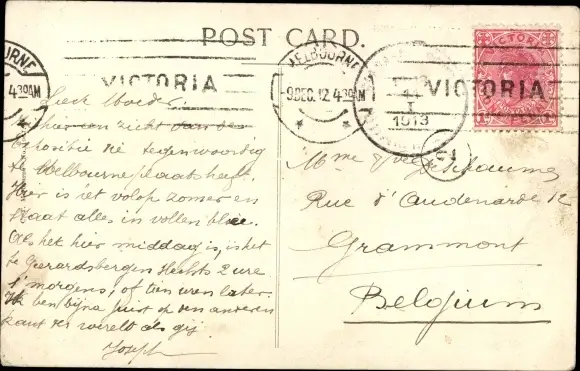 POST CARD.
MELBOURNE
9 DEC. 12 4 30 AM
VICTORIA
VICTORIA
VICTORIA
14
I
1913
51
Lieve Moeder
hier een zicht van de
tegenwoordig
te Melbourne plaats heeft.
Hier is het volop zomer en
staat alles in vollen bloei.
Als het hier middag is, is het
te Geerardsbergen slechts 2 ure
's morgens, of tien uren later.
Ik ben bijna juist op den anderen
kant der wereld als gij
Joseph
Mme Vve
Rue d'Audenarde 12
Grammont
Belgium